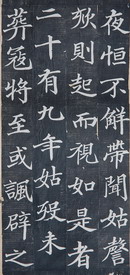 夜恒不解帶聞姑謦
欬則起而視如是者
二十有九年姑歿未
葬冦將至或諷辟之